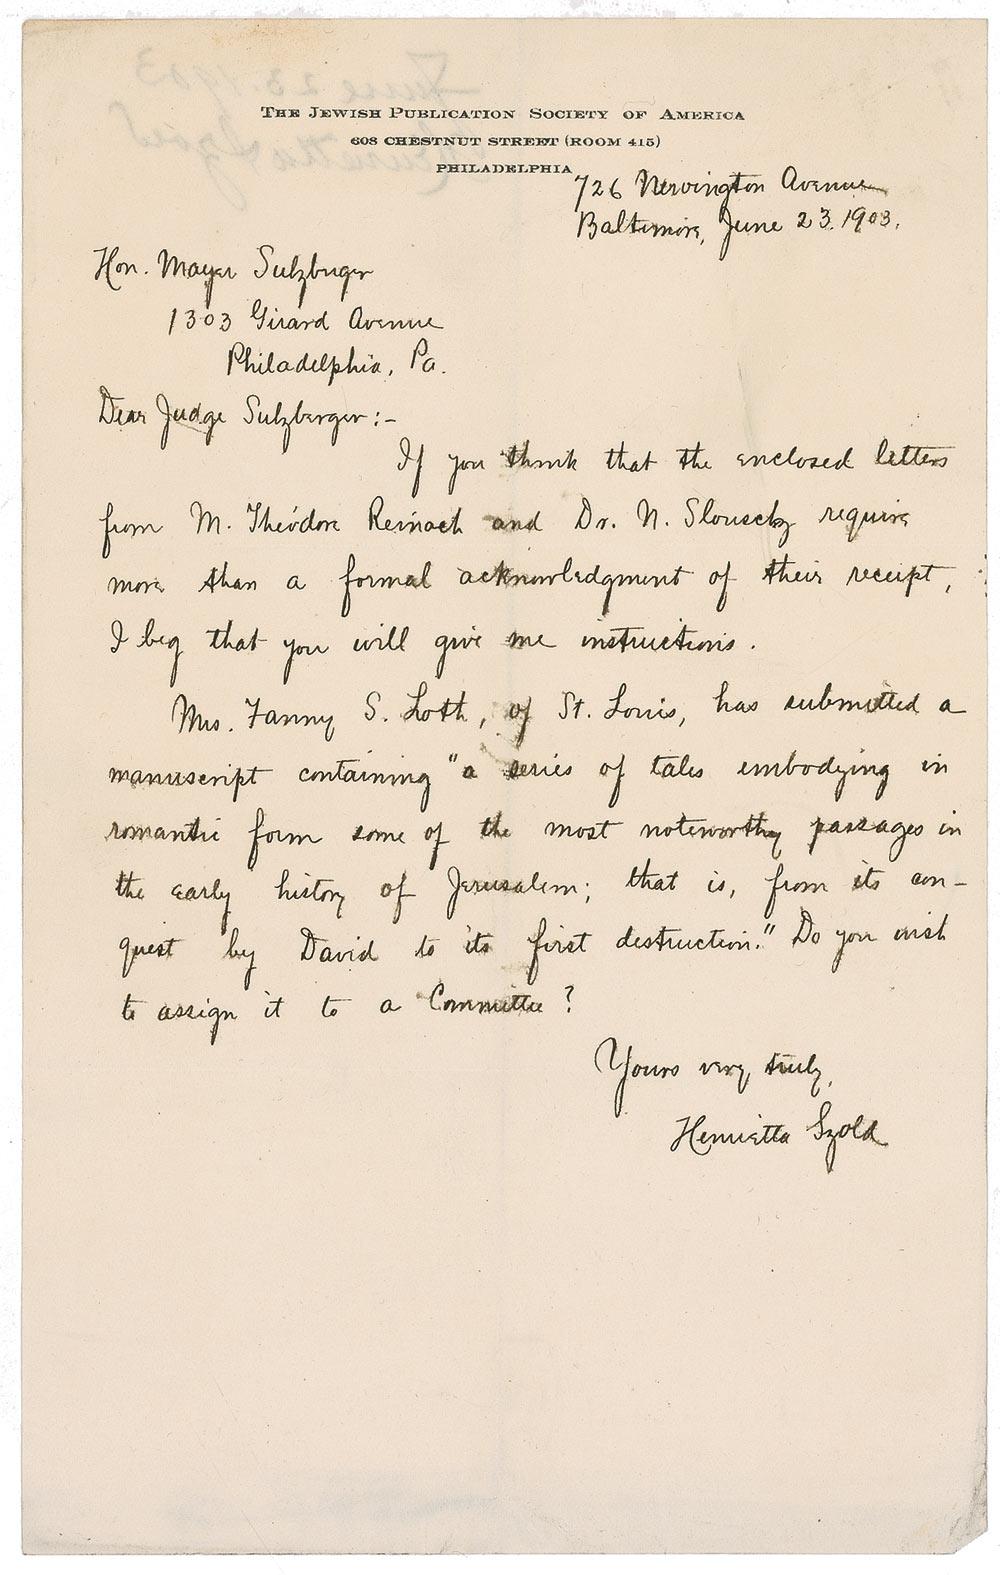 THE JEWISH PUBLICATION SOCIETY OF AMERICA
608 CHESTNUT STREET (ROOM 415)
PHILADELPHIA
726 Newington Avenue
Baltimore, June 23. 1903.
Hon. Mayer Sulzberger
1303 Girard Avenue
Philadelphia, Pa.
Dear Judge Sulzberger:-
If you think that the enclosed letters
from M. Théodore Reinach and Dr. N. Slouschz require
more than a formal acknowledgment of their receipt,
I beg that you will give me instructions.
Mrs. Fanny S. Loth, of St. Louis, has submitted a
manuscript containing "a series of tales embodying in
romantic form some of the most noteworthy passages in
the early history of Jerusalem; that is, from its con-
quest by David to its first destruction." Do you wish
to assign it to a Committee?
Yours very truly,
Henrietta Szold